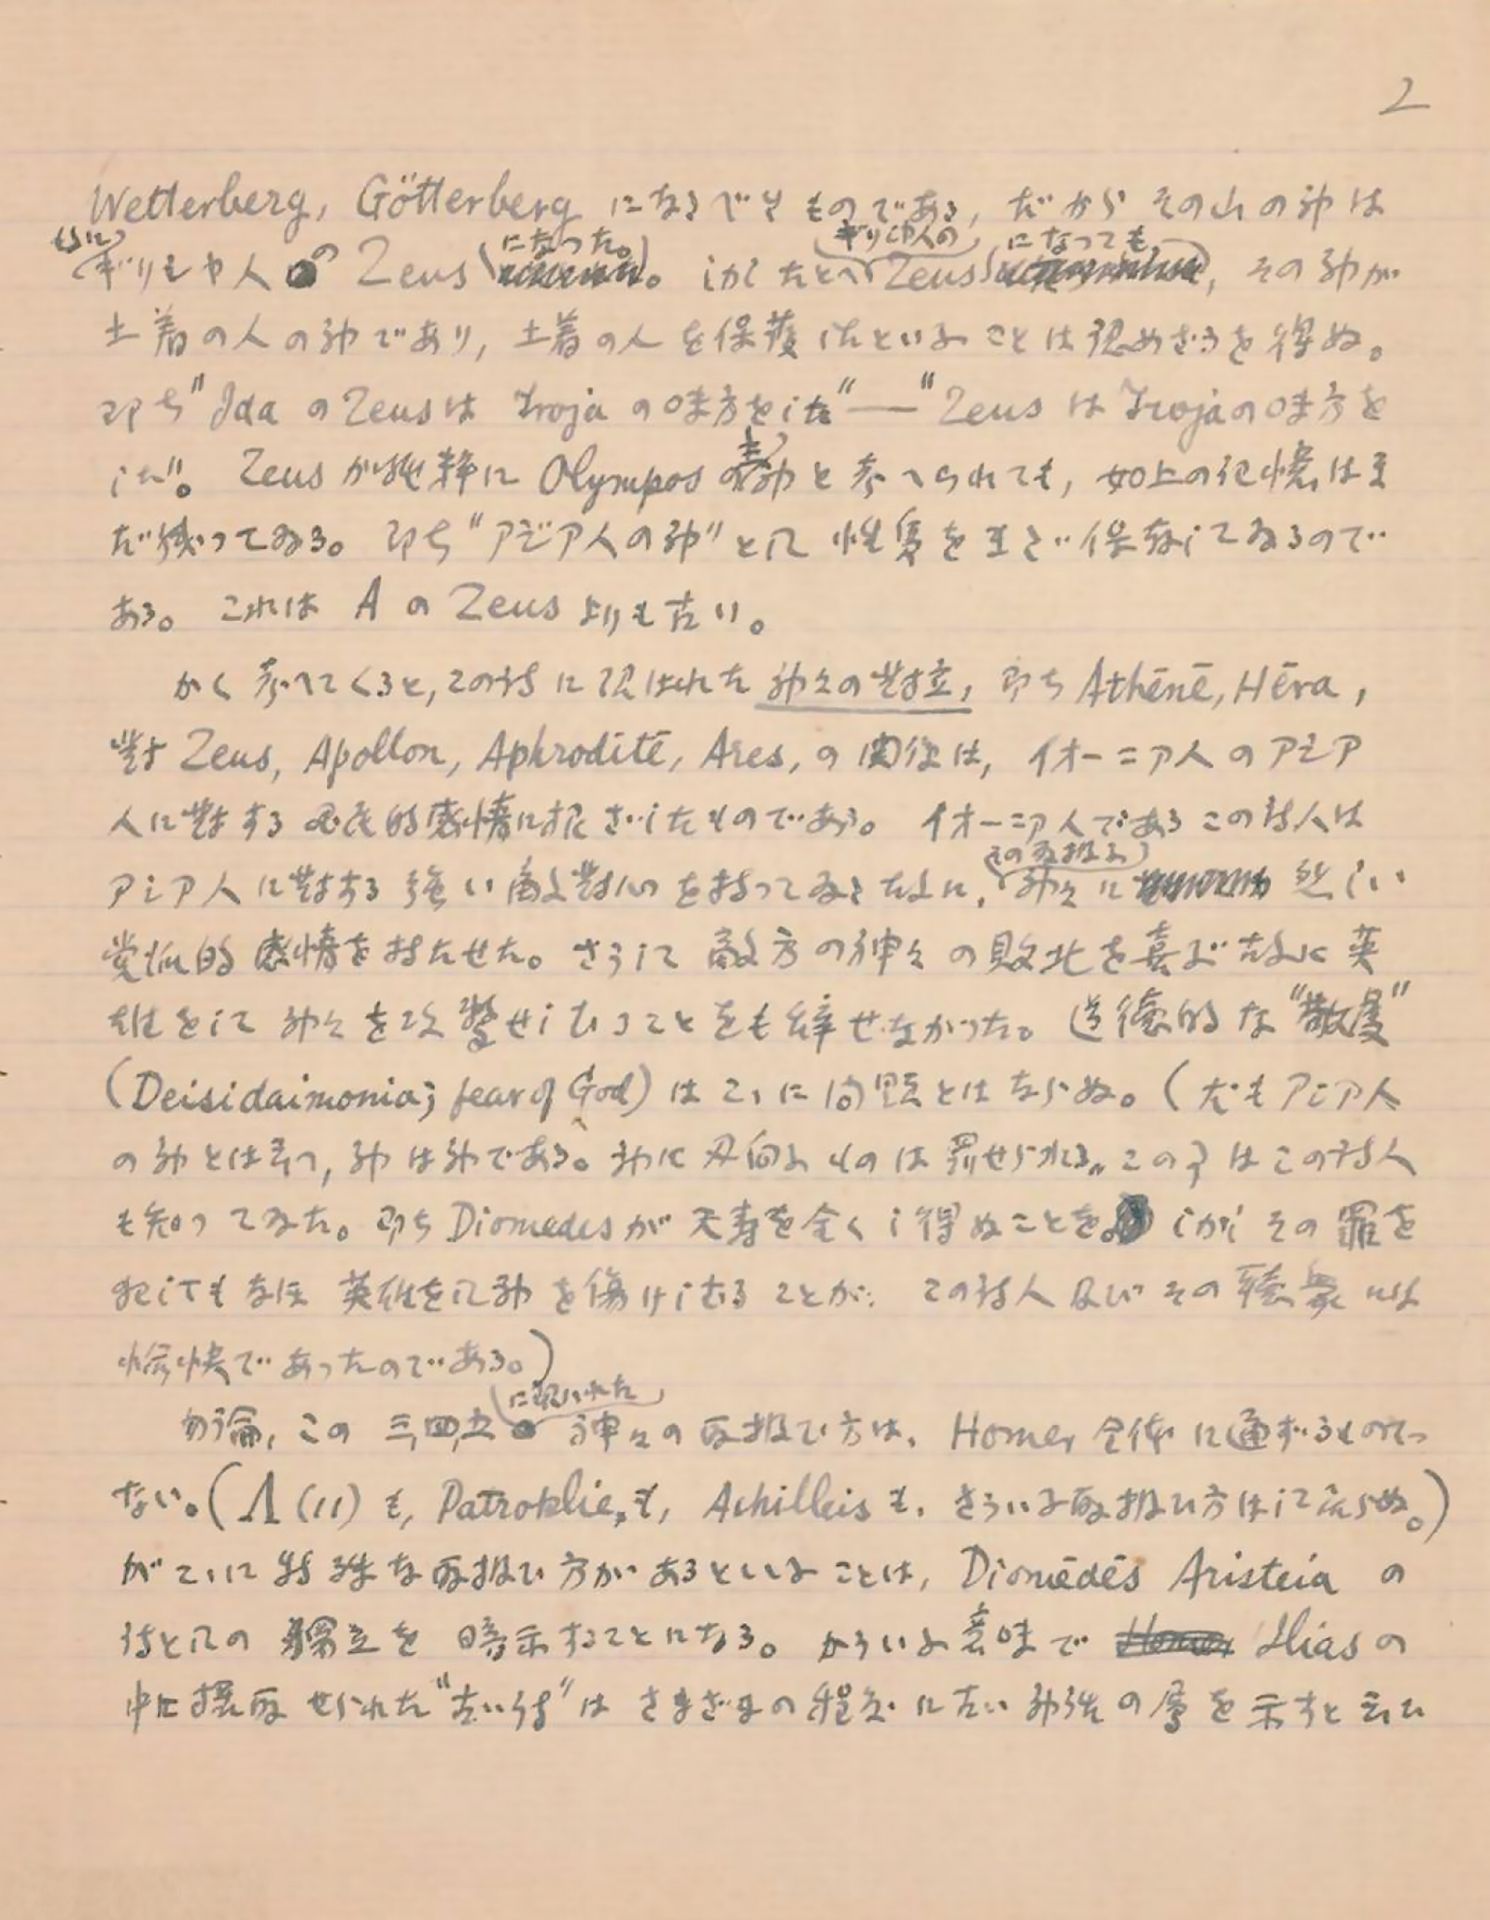 2
Wetterberg, Götterberg になるべきものである, だから その山の神は
ギリシヤ人の Zeus になった。しかしたとへ ギリシヤ人の Zeus になっても, その神が
土着の人の神であり, 土着の人を保護したといふことは認めざるを得ぬ。
即ち "Ida の Zeus は Troja の味方をした" — "Zeus は Troja の味方を
した"。 Zeus が純粋に Olympos の神と考へられても, 如上の記憶はま
だ残ってゐる。即ち "アジア人の神" として 性質をまだ保存してゐるので
ある。 これは A の Zeus よりも古い。
かく考へてくると, この詩に現はれた 神々の對立, 即ち Athēnē, Hēra,
對 Zeus, Apollon, Aphroditē, Ares, の関係は, イオーニア人のアジア
人に對する 國民的感情に根ざしたものである。 イオーニア人である この詩人は
アジア人に對する 強い敵對心を持ってゐるために, その取扱ふ 神々に 烈しい
党派的感情を持たせた。さうして 敵方の神々の敗北を喜ぶために 英
雄をして 神々を攻撃せしむることをも辞せなかった。道徳的な "敬虔"
(Deisidaimonia; fear of God) はこゝに問題とはならぬ。(尤もアジア人
の神とは云へ, 神は神である。神に刃向ふものは罰せられる。この事はこの詩人
も知ってゐた。即ち Diomedes が 天寿を全くし得ぬことを。しかし その罪を
犯してもなほ 英雄をして神を傷けしむることが, この詩人及び その聴衆には
愉快であったのである。)
勿論, この 三,四,五 に現はれた 神々の取扱ひ方は, Homer 全体に通ずるものでは
ない。(Λ (11) も, Patroklie も, Achilleis も, さういふ取扱ひ方はして居らぬ。)
がこゝに特殊な取扱ひ方があるといふことは, Diomēdēs Aristeia の
詩としての 獨立を 暗示することになる。かういふ意味で Ilias の
中に採取せられた "古い詩" は さまざまの程度に古い 神話の層を示すと云ひ